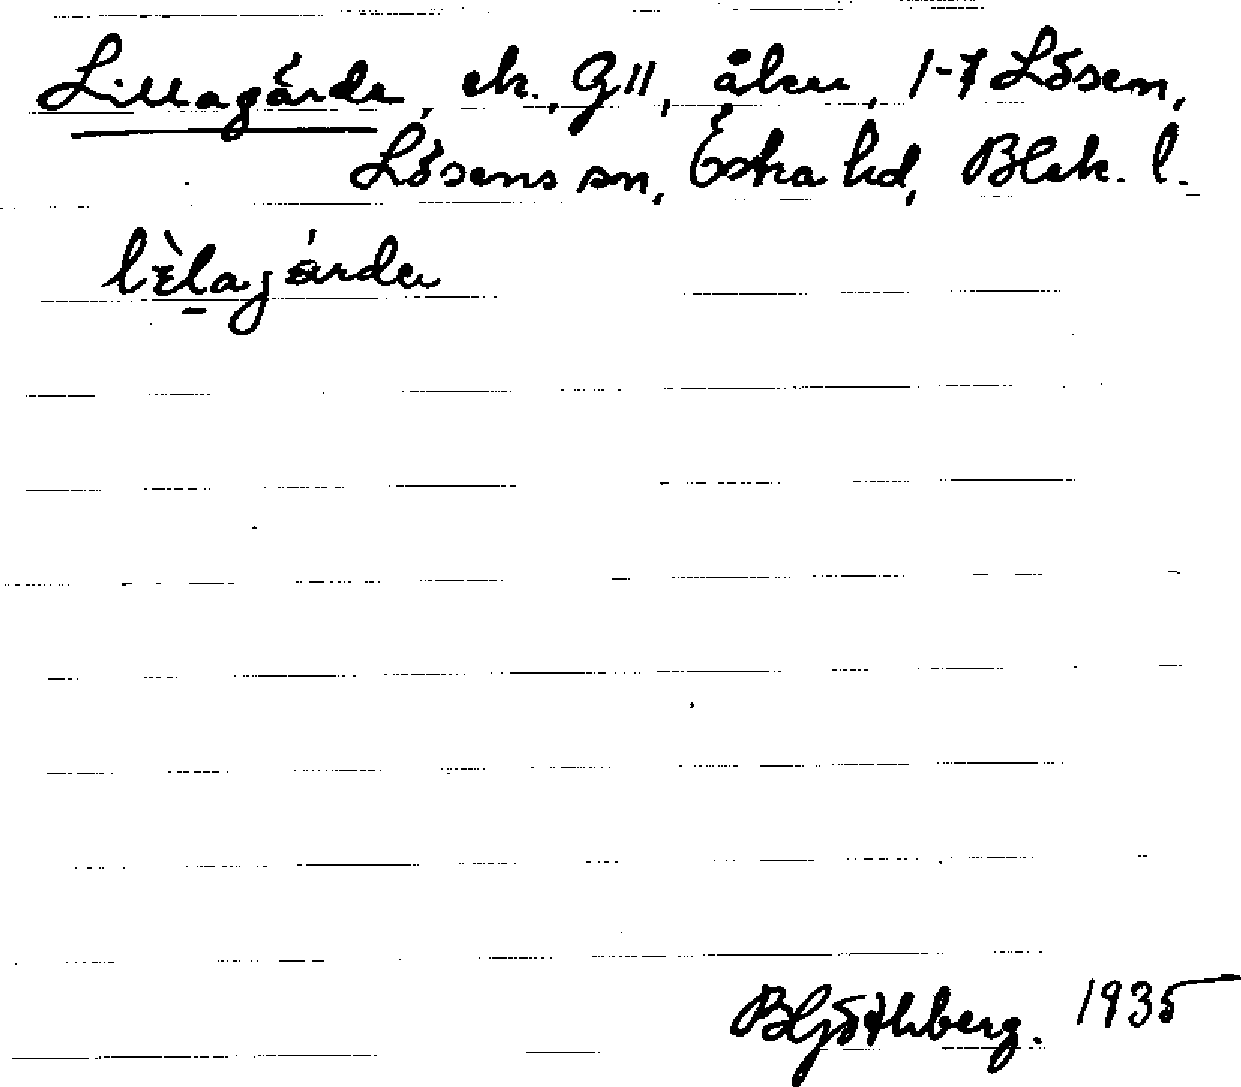 Lillagärde, ek., G11, åker, 1-7 Lösen,
Lösens sn, Östra hd, Blek. l.
lìlagárdə
1935